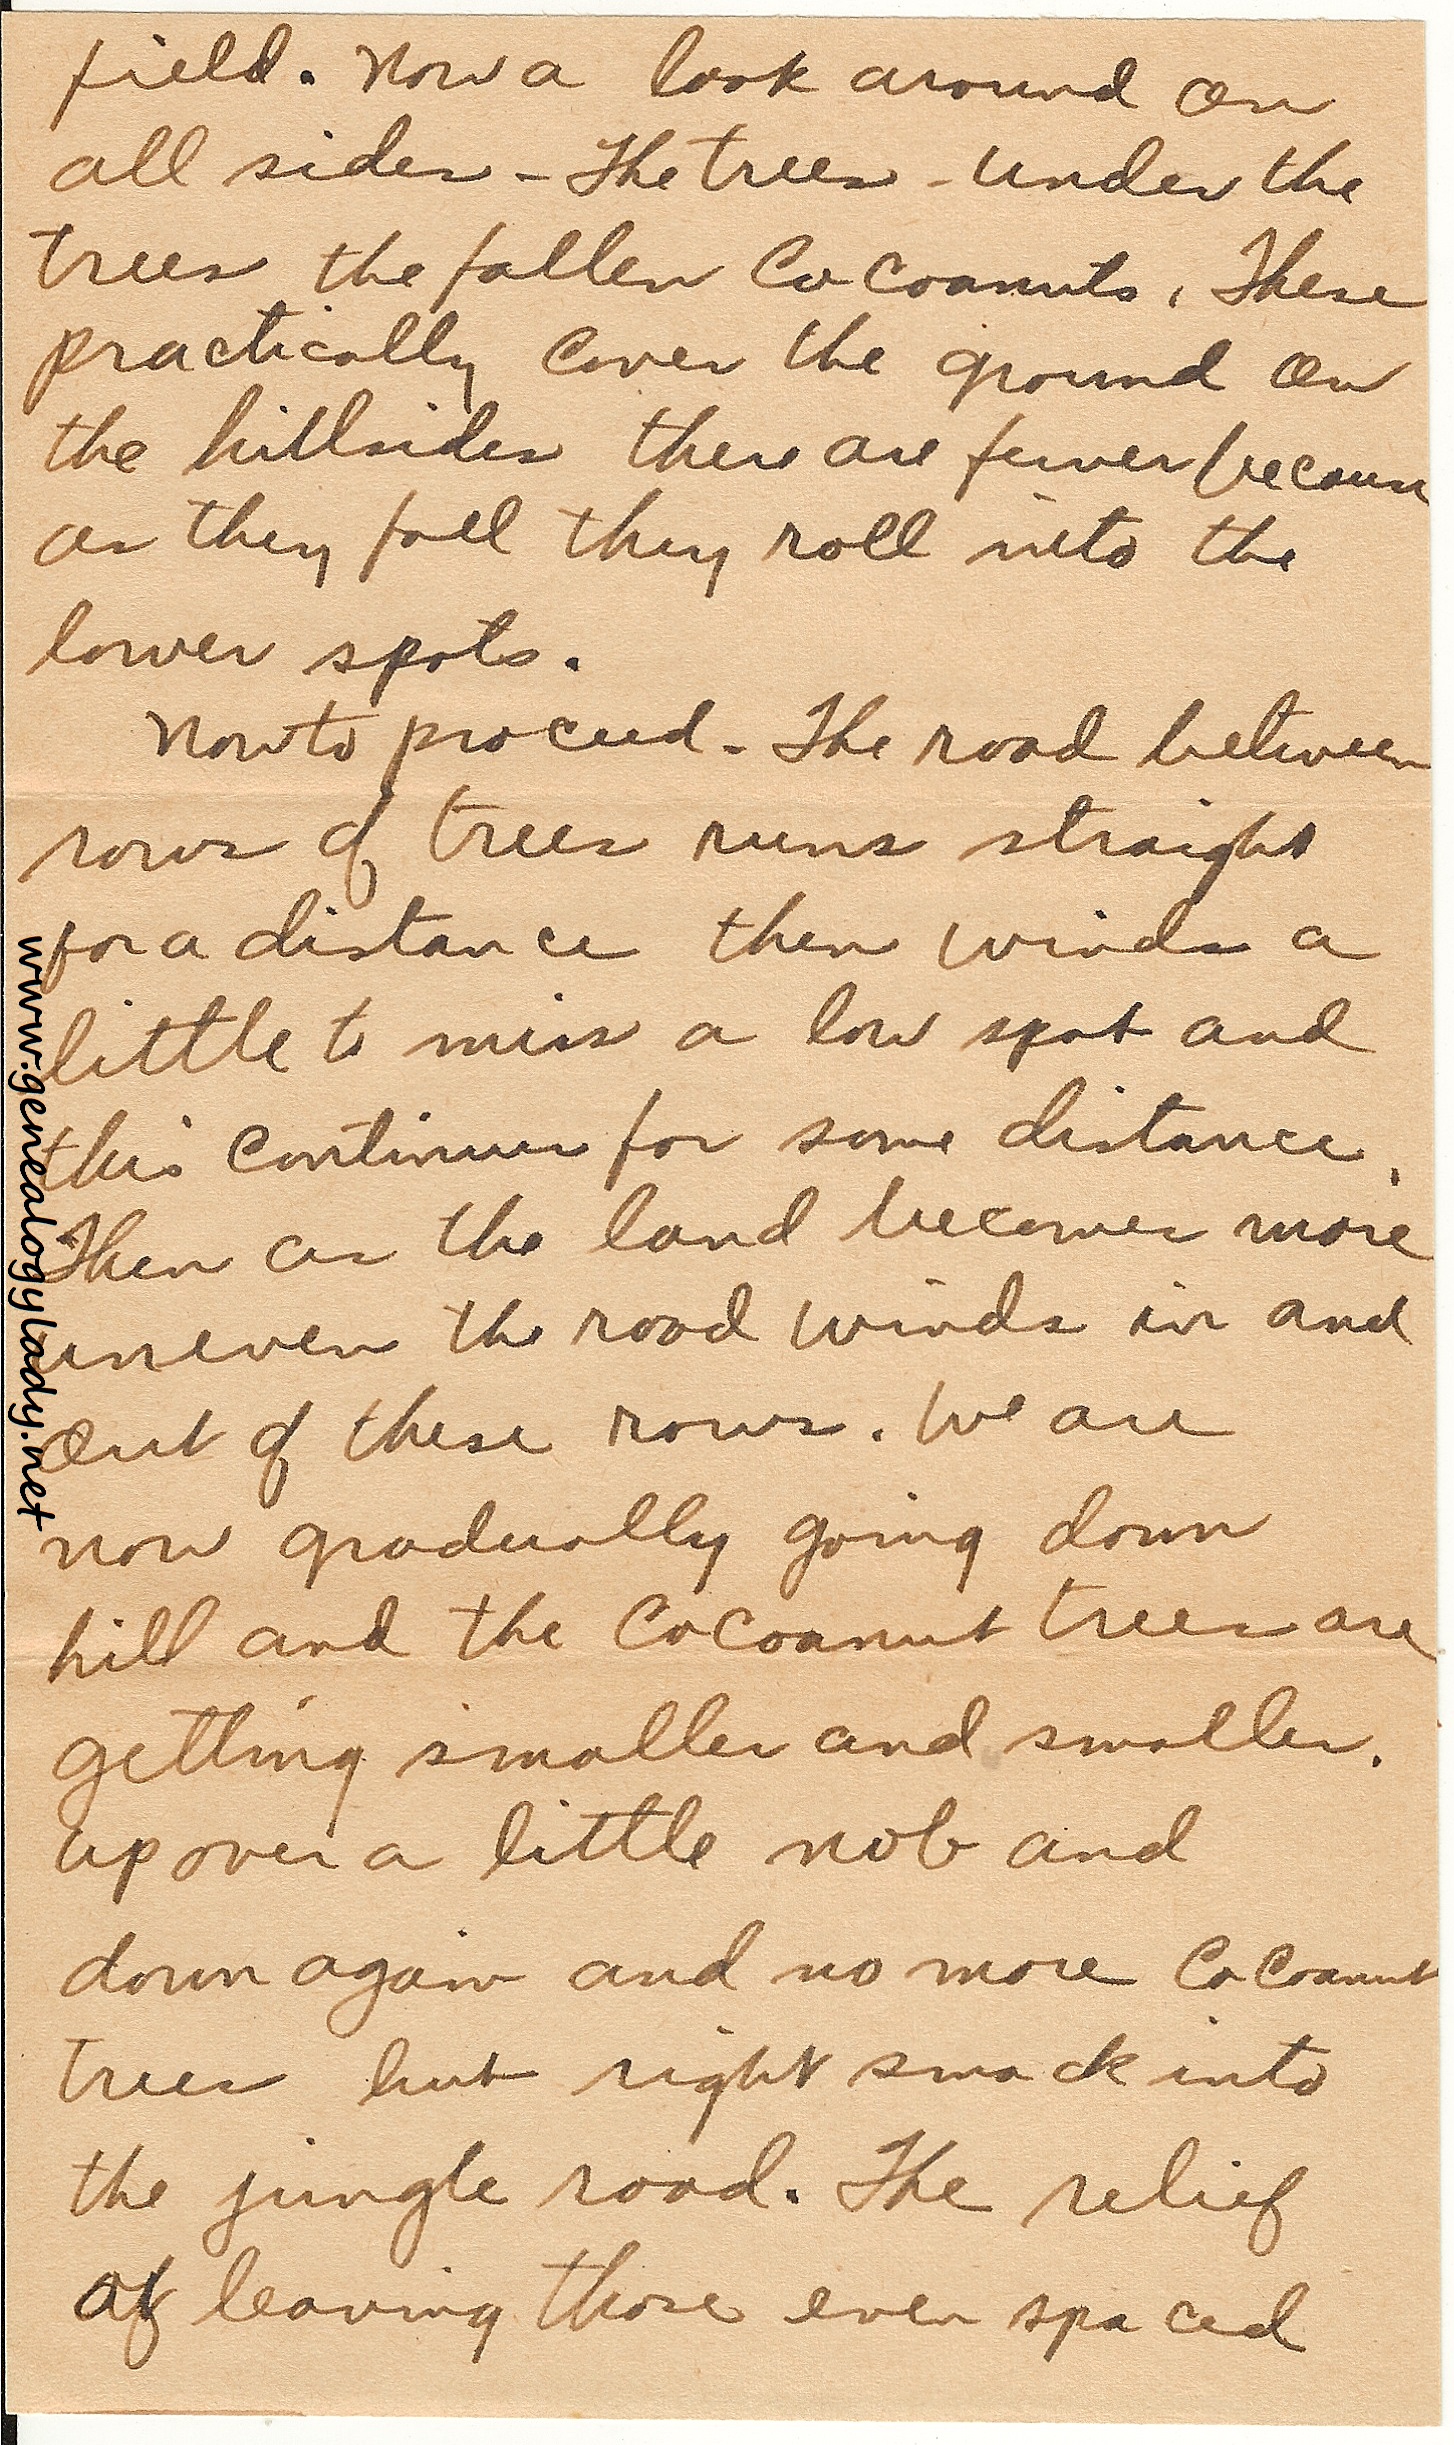 field. Now a look around on
all sides - The trees - under the
trees the fallen Cocoanuts, These
practically cover the ground on
the hillsides there are fewer because
as they fall they roll into the
lower spots.
Now to proceed - The road between
rows of trees runs straight
for a distance then winds a
little to miss a low spot and
this continues for some distance.
Then as the land becomes more
uneven the road winds in and
out of these rows. We are
now gradually going down
hill and the Cocoanut trees are
getting smaller and smaller.
up over a little nob and
down again and no more Cocoanut
trees but right smack into
the jungle road. The relief
of leaving those even spaced
www.genealogylady.net